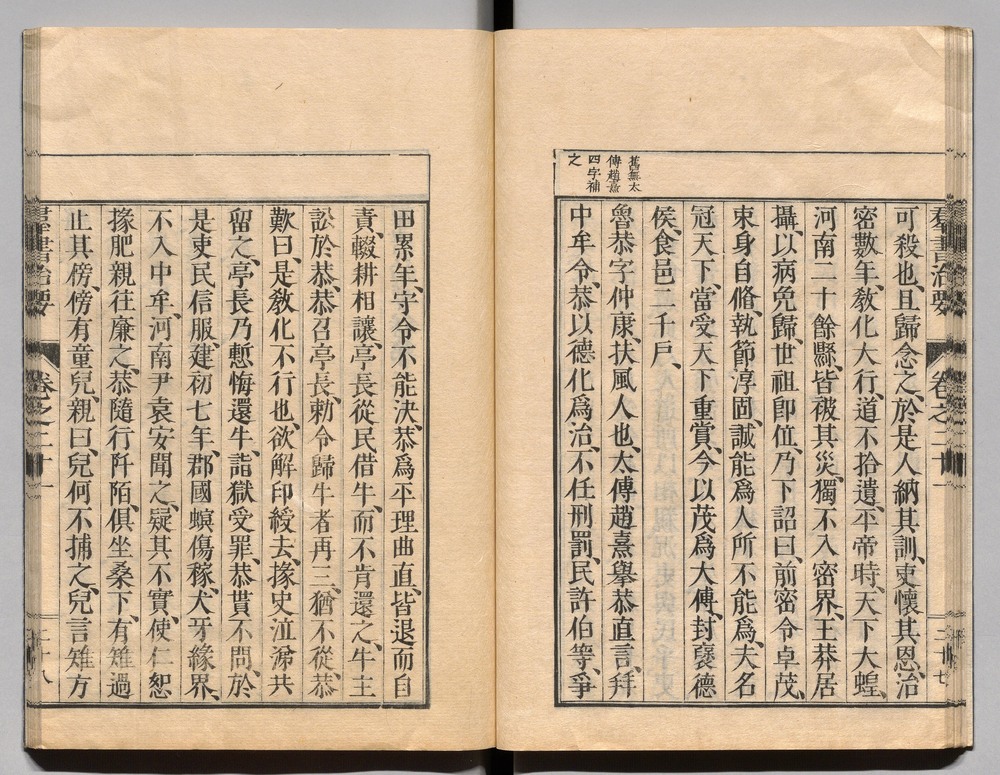 羣書治要 卷之二十一 二十七
可殺也、且歸念之、於是人納其訓、吏懷其恩、治
密數年、敎化大行、道不拾遺、平帝時、天下大蝗、
河南二十餘縣、皆被其災、獨不入密界、王莽居
攝、以病免歸、世祖卽位、乃下詔曰、前密令卓茂、
束身自脩、執節淳固、誠能爲人所不能爲、夫名
冠天下、當受天下重賞、今以茂爲大傅、封褒德
侯、食邑二千戶、
魯恭字仲康、扶風人也、太傅趙憙擧恭直言、拜
中牟令、恭以德化爲治、不任刑罰、民許伯等、爭
舊無太
傅趙憙
四字補
之
田累年、守令不能決、恭爲平理曲直、皆退而自
責、輟耕相讓、亭長從民借牛、而不肯還之、牛主
訟於恭、恭召亭長、勅令歸牛者再三、猶不從、恭
歎曰、是敎化不行也、欲解印綬去、掾史泣涕共
留之、亭長乃慙悔還牛、詣獄受罪、恭貰不問、於
是吏民信服、建初七年、郡國螟傷稼、犬牙緣界、
不入中牟、河南尹袁安聞之、疑其不實、使仁恕
掾肥親往廉之、恭隨行阡陌、俱坐桑下、有雉過
止其傍、傍有童兒、親曰、兒何不捕之、兒言雉方
羣書治要 卷之二十一 二十八